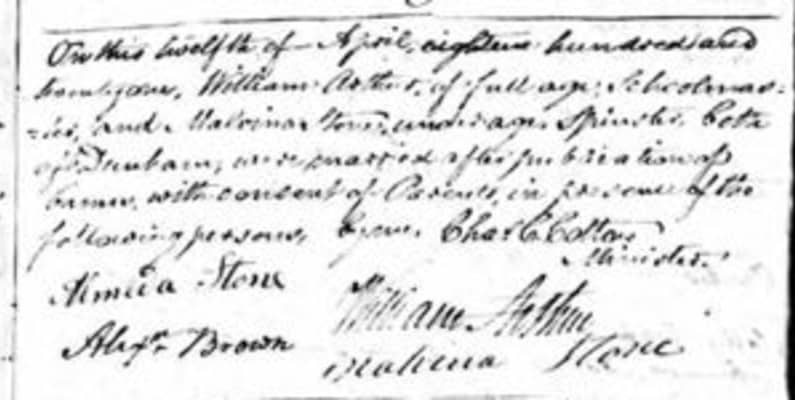 On this twelfth of April, eighteen hundred and
twenty one, William Arthur, of full age, Schoolmas=
=ter, and Malvina Stone, under age, Spinster, both
of Dunham, were married after publication of
banns, with consent of Parents, in presence of the
following persons, by me, Chas. C. Cotton
Minister.
Almera Stone William Arthur
Alexr. Brown Malvina Stone